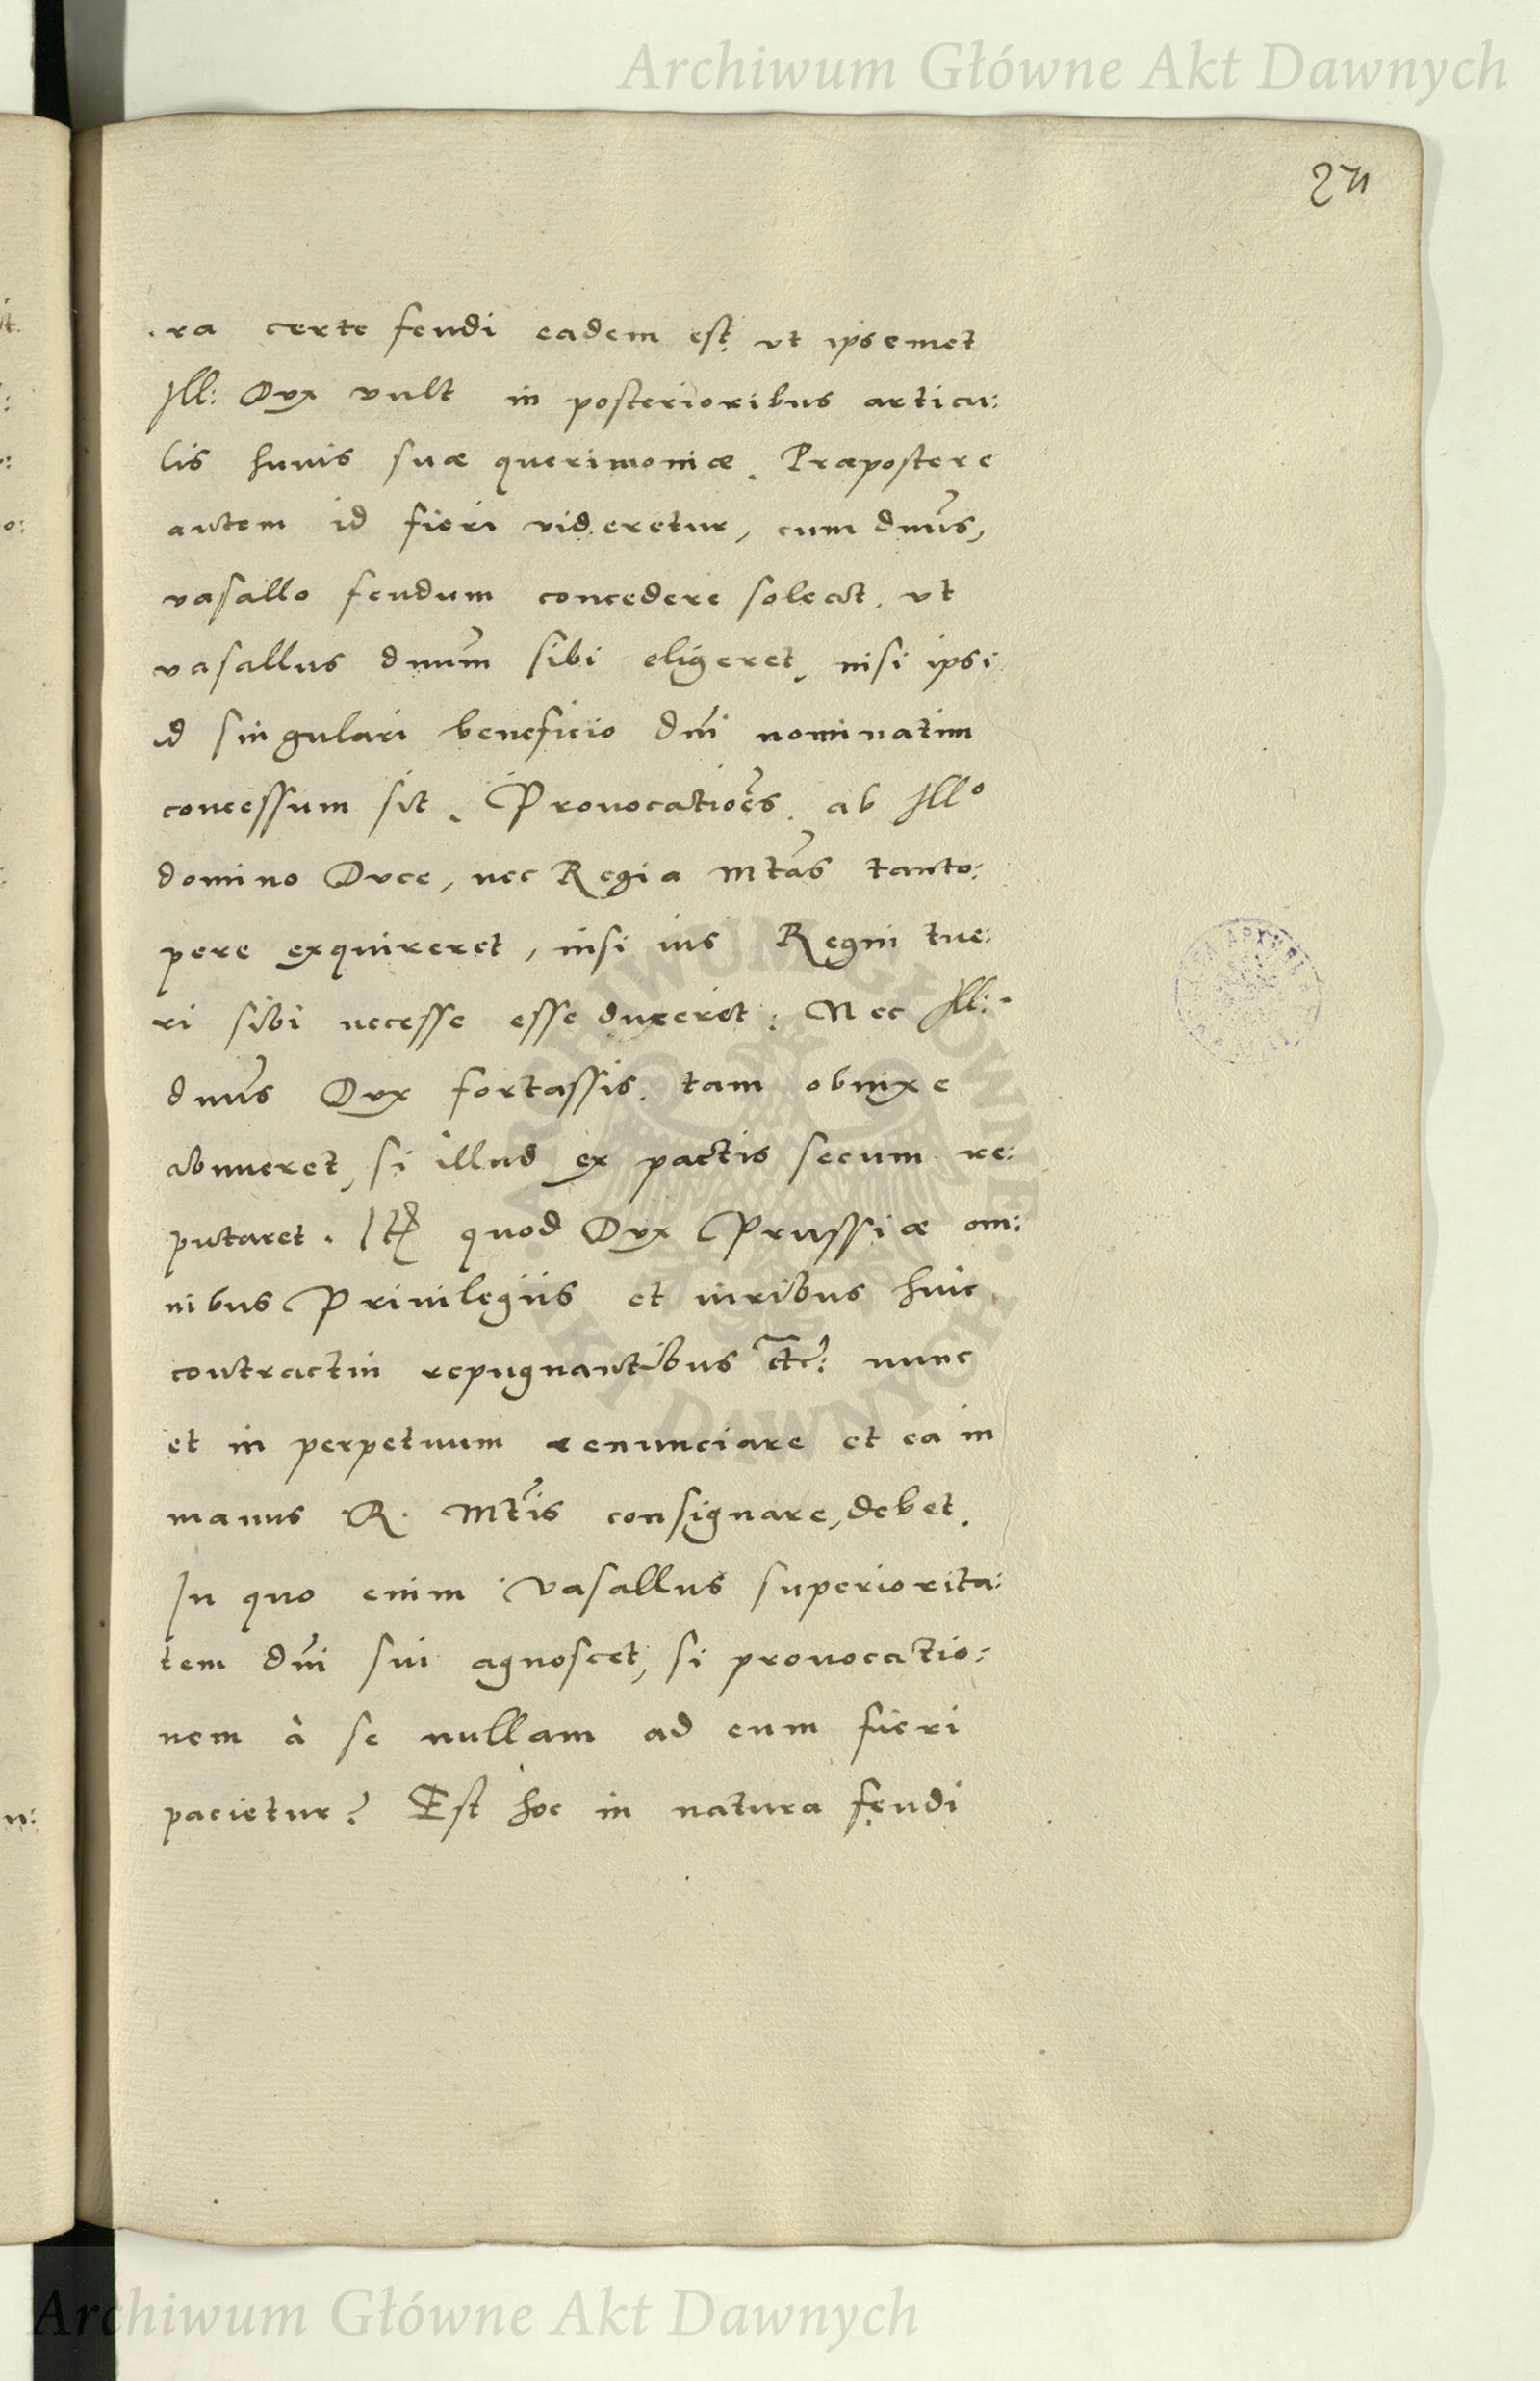 Archiwum Główne Akt Dawnych
.ra certe feudi eadem est, vt ipsemet
Ill: Dux vult in posterioribus articu:
lis huius suæ querimoniæ. Præpostere
autem id fieri videretur, cum dnus,
vasallo feudum concedere soleat, vt
vasallus dnum sibi eligeret, nisi ipsi
id singulari beneficio dni nominatim
concessum sit. Prouocatioēs ab Illo
domino Duce, nec Regia Mtas tanto:
pere exquireret, nisi ius Regni tue:
ri sibi necesse esse duxerit: Nec Ill:
dnus Dux fortassis tam obnixe
abnueret, si illud ex pactis secum re:
putaret. quod Dux Prussiæ om:
nibus Priuilegiis et iuribus huic
contractui repugnantibus etc: nunc
et in perpetuum renunciare et ea in
manus R. Mtis consignare, debet.
In quo enim vasallus superiorita:
tem dni sui agnoscet, si prouocatio:
nem à se nullam ad eum fieri
pacietur? Est hoc in natura feudi
ARCHIWUM GŁÓWNE AKT DAWNYCH
Archiwum Główne Akt Dawnych